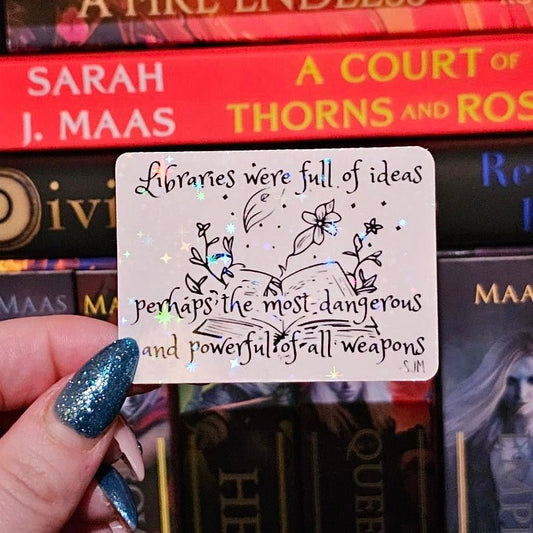 A FIRE ENDLESS
SARAH
J. MAAS
A COURT OF
THORNS AND ROS
Libraries were full of ideas
ivi
Re
perhaps the most dangerous
and powerful of all weapons
-SJM
MAAS
MA
MAA
HE
QUEE
EMPI